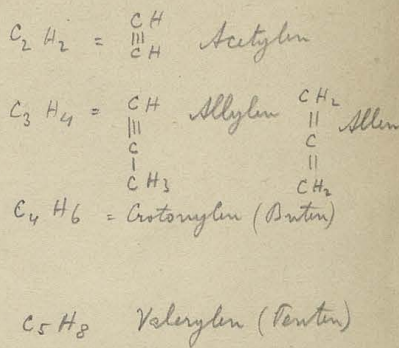 C2 H2 = CH ≡ CH Acetylen
C3 H4 = CH ≡ C - CH3 Allylen CH2 = C = CH2 Allen
C4 H6 = Crotonylen (Butin)
C5 H8 Valerylen (Pentin)